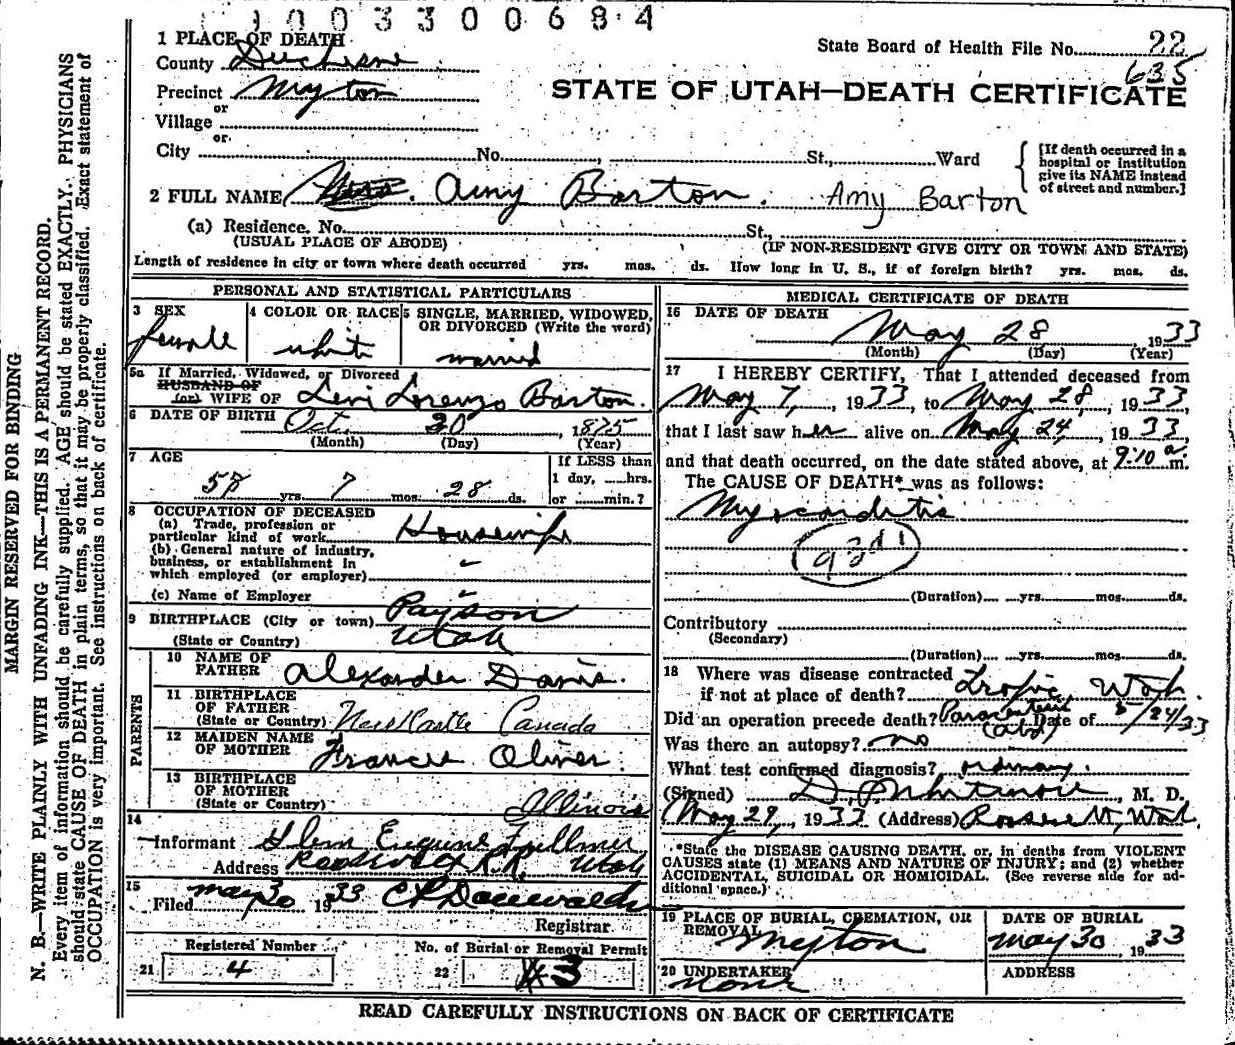 1003300684
1 PLACE OF DEATH
State Board of Health File No. 22
635
County Duchesne
Precinct Myton
STATE OF UTAH—DEATH CERTIFICATE
or
Village
or
City No. , St., Ward
[If death occurred in a
hospital or institution
give its NAME instead
of street and number.]
2 FULL NAME Mrs. Amy Barton. Amy Barton
(a) Residence. No. St.,
(USUAL PLACE OF ABODE) (IF NON-RESIDENT GIVE CITY OR TOWN AND STATE)
Length of residence in city or town where death occurred yrs. mos. ds. How long in U. S., if of foreign birth? yrs. mos. ds.
PERSONAL AND STATISTICAL PARTICULARS
3 SEX
female
4 COLOR OR RACE
white
5 SINGLE, MARRIED, WIDOWED,
OR DIVORCED (Write the word)
married
5a If Married, Widowed, or Divorced
HUSBAND OF
(or) WIFE OF Levi Lorenzo Barton.
6 DATE OF BIRTH Oct. 30 1875
(Month) (Day) (Year)
7 AGE
58 yrs. 7 mos. 28 ds.
If LESS than
1 day, hrs.
or min.?
8 OCCUPATION OF DECEASED
(a) Trade, profession or
particular kind of work Housewife
(b) General nature of industry,
business, or establishment in
which employed (or employer)
(c) Name of Employer
9 BIRTHPLACE (City or town) Payson
(State or Country) Utah
PARENTS
10 NAME OF
FATHER Alexander Davis.
11 BIRTHPLACE
OF FATHER
(State or Country) New Castle Canada
12 MAIDEN NAME
OF MOTHER Francis Oliver.
13 BIRTHPLACE
OF MOTHER
(State or Country) Illinois
14
Informant Glen Eugene Fullmer
Address Roosevelt R.R. Utah
15
Filed May 30 1933
Registrar
Registered Number
21 4
No. of Burial or Removal Permit
22 #3
MEDICAL CERTIFICATE OF DEATH
16 DATE OF DEATH
May 28 1933
(Month) (Day) (Year)
17 I HEREBY CERTIFY, That I attended deceased from
May 7, 1933, to May 28, 1933,
that I last saw her alive on May 24, 1933,
and that death occurred, on the date stated above, at 9:10 a m.
The CAUSE OF DEATH* was as follows:
Myocarditis
(Duration) yrs. mos. ds.
Contributory
(Secondary)
(Duration) yrs. mos. ds.
18 Where was disease contracted
if not at place of death? Tropic, Utah.
Did an operation precede death? Date of 5/24/33
Was there an autopsy? no
What test confirmed diagnosis? ordinary.
(Signed) , M. D.
May 29, 1933 (Address) Roosevelt, Utah.
*State the DISEASE CAUSING DEATH, or, in deaths from VIOLENT
CAUSES state (1) MEANS AND NATURE OF INJURY; and (2) whether
ACCIDENTAL, SUICIDAL OR HOMICIDAL. (See reverse side for ad-
ditional space.)
19 PLACE OF BURIAL, CREMATION, OR
REMOVAL
Myton
DATE OF BURIAL
May 30 1933
20 UNDERTAKER
None
ADDRESS
READ CAREFULLY INSTRUCTIONS ON BACK OF CERTIFICATE
MARGIN RESERVED FOR BINDING
N. B.—WRITE PLAINLY WITH UNFADING INK—THIS IS A PERMANENT RECORD.
Every item of information should be carefully supplied. AGE should be stated EXACTLY. PHYSICIANS
should state CAUSE OF DEATH in plain terms, so that it may be properly classified. Exact statement of
OCCUPATION is very important. See instructions on back of certificate.